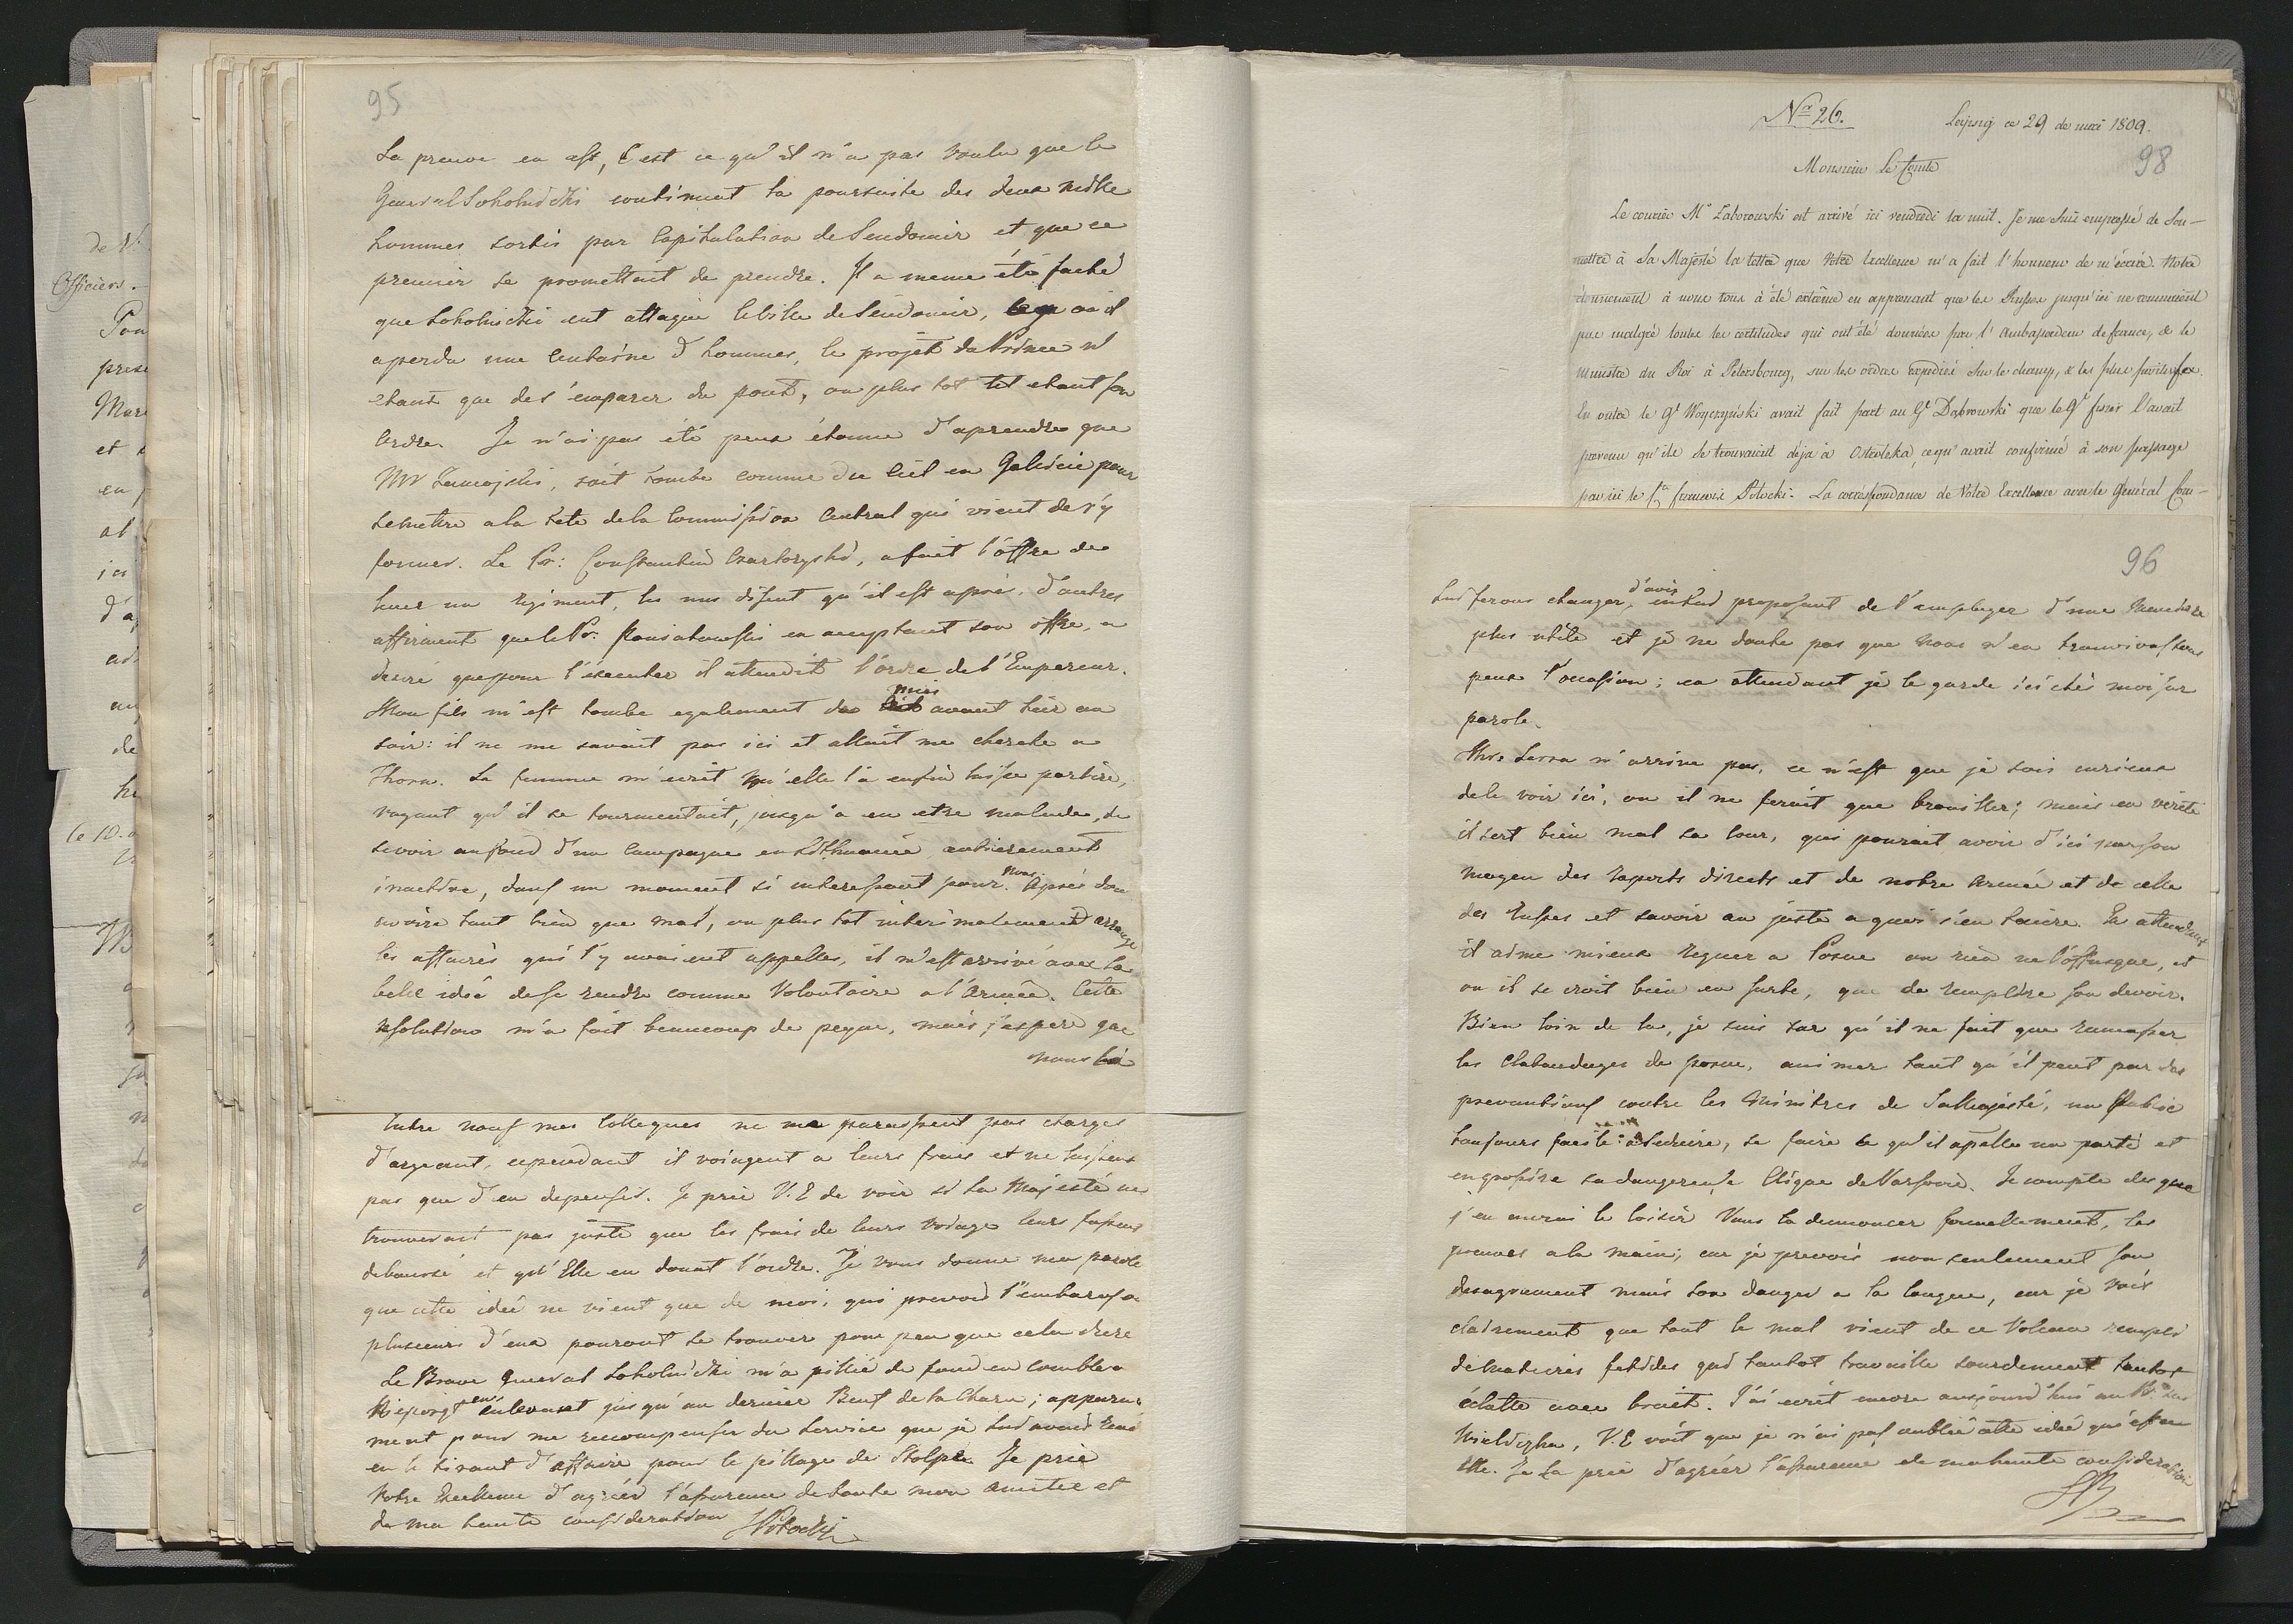 95
La preuve en est, c'est ce qu'il n'a pas voulu que le
General Sokolnicki continuat la poursuite des deux mille
hommes sortis par Capitulation de Sendomir et que ce
premier se promettait de prendre. Il a meme été faché
que Sokolnicki eut attaqué la ville de Sendomir, où il
a perdu une centaine d'hommes, le projet du Prince n'
etant que de s'emparer du pont, ou plus tot tel etant son
ordre. Je n'ai pas été peux étonné d'aprendre que
Mr Zamojski, soit tombé comme du Ciel en Galicie pour
se mettre a la tete de la Commission Central qui vient de s'y
former. Le Pr: Constantin Czartoryski, a fait l'offre de
lever un regiment, les uns disent qu'il est apsie, d'autres
affirment que le Pr: Poniatowski en acceptant son offre, a
desiré que pour l'executer il attendit l'ordre de l'Empereur.
Mon fils m'est tombé egalement des nues avant hier au
soir: il ne me savait pas ici et allait me cherche a
Thorn. Sa femme m'ecrit qu'elle l'a enfin laisse partire,
voyant qu'il se tourmentait, jusqu'a en etre malade, de
se voir au fond d'une campagne en Lithuanie entierement
inactive, dans un moment si interessant pour nous. Après d'en
avoire tant bien que mal, ou plus tot interimalement arrangé
les affaires qui l'y avaient appellés, il m'est arrivé avec la
belle idée de se rendre comme Volontaire a l'Armée. Cette
resolution m'a fait beaucoup de peyne, mais j'espere que
nous lui
Entre nous mes Collegues ne me paraissent pas chargés
d'argeant, cependant il voiagent a leurs frais et ne laissent
pas que d'en depenser. Je prie V.E de voir si Sa Majesté ne
trouverait pas juste que les frais de leurs voiage leurs fussent
deboursé et qu'Elle en donat l'ordre. Je vous donne ma parole
que cette idée ne vient que de moi, qui prevoid l'embaras ou
plusieurs d'eux pouront se trouver pour peu que cela dure
Le Brave General Sokolnicki m'a pillié de fond en comble a
en enlevant jusqu'au dernier Beuf de la Charu; apparem-
ment pour me recompenser du service que je lui avais rendu
en le tirant d'affaire pour le pillage de Stolpe. Je prie
Votre Excellence d'agréer l'assurance de toute mon amitée et
de ma haute consideration SPotocki
Nr 26.
Leipsig ce 29 de mai 1809.
98
Monsieur Le Comte
Le courier Mr Zaborowski est arrivé ici vendredi la nuit. Je me suis empressé de Sou-
mettre à Sa Majesté la lettre que Votre Excellence m'a fait l'honneur de m'écrire. Notre
étonnement à nous tous à été extrême en apprenant que les Russes jusqu'ici ne remuaient
pas malgré toutes les certitudes qui ont été données par l'Ambassadeur de france, & le
ministre du Roi à Petersbourg, sur les ordres expediés sur le champ, & les plus positifs.
En outre le Gl Woyczyński avait fait part au Gl Dąbrowski que le Gl fiszer l'avait
prevenu qu'ils se trouvaient déja à Ostroleka, ce qu'avait confirmé à son passage
par ici le Cte francois Potocki. La correspondance de Votre Excellence avec le Général Com-
96
lui ferons changer d'avis, en lui proposant de l'employer d'une maniere
plus utile et je ne doute pas que nous n'en trouvions
peux l'occasion; en attendant je le garde ici chès moi sur
parole.
Mr. Serra n'arrive pas, ce n'est que je sois curieux
de le voir ici, ou il ne ferait que brouiller; mais en verité
il sert bien mal sa Cour, qui pourait avoir d'ici par son
moyen des raports directs et de notre Armée et de celle
des Russes et savoir au juste a quoi s'en tenire. En attendant
il aime mieux regner a Posne ou rien ne l'offusque, et
ou il se croit bien en sureté, que de remplire son devoir.
Bien loin de la, je suis sur qu'il ne fait que ramasser
les Clabaudages de Posne, animer tant qu'il peut par des
preventions contre les Ministres de Sa Majesté, un Public
toujours facile a seduire, se faire ce qu'il apelle un parti et
en grossire sa dangereuse Clique de Varsovie. Je compte des que
j'en aurai le loisir Vous la dennoncer formellement, les
preuves a la main; car je prevois non seulement son
desagrement mais son danger a la longue, car je vois
clairement que tout le mal vient de ce Volcan rempli
de matieres fetides qui tantot travaille sourdement tantot
éclatte avec bruit. J'ai ecrit encore aujourd'hui au
V.E voit que je n'ai pas oublié cette idée qu'est a
Elle. Je la prie d'agréer l'assurance de ma haute consideration